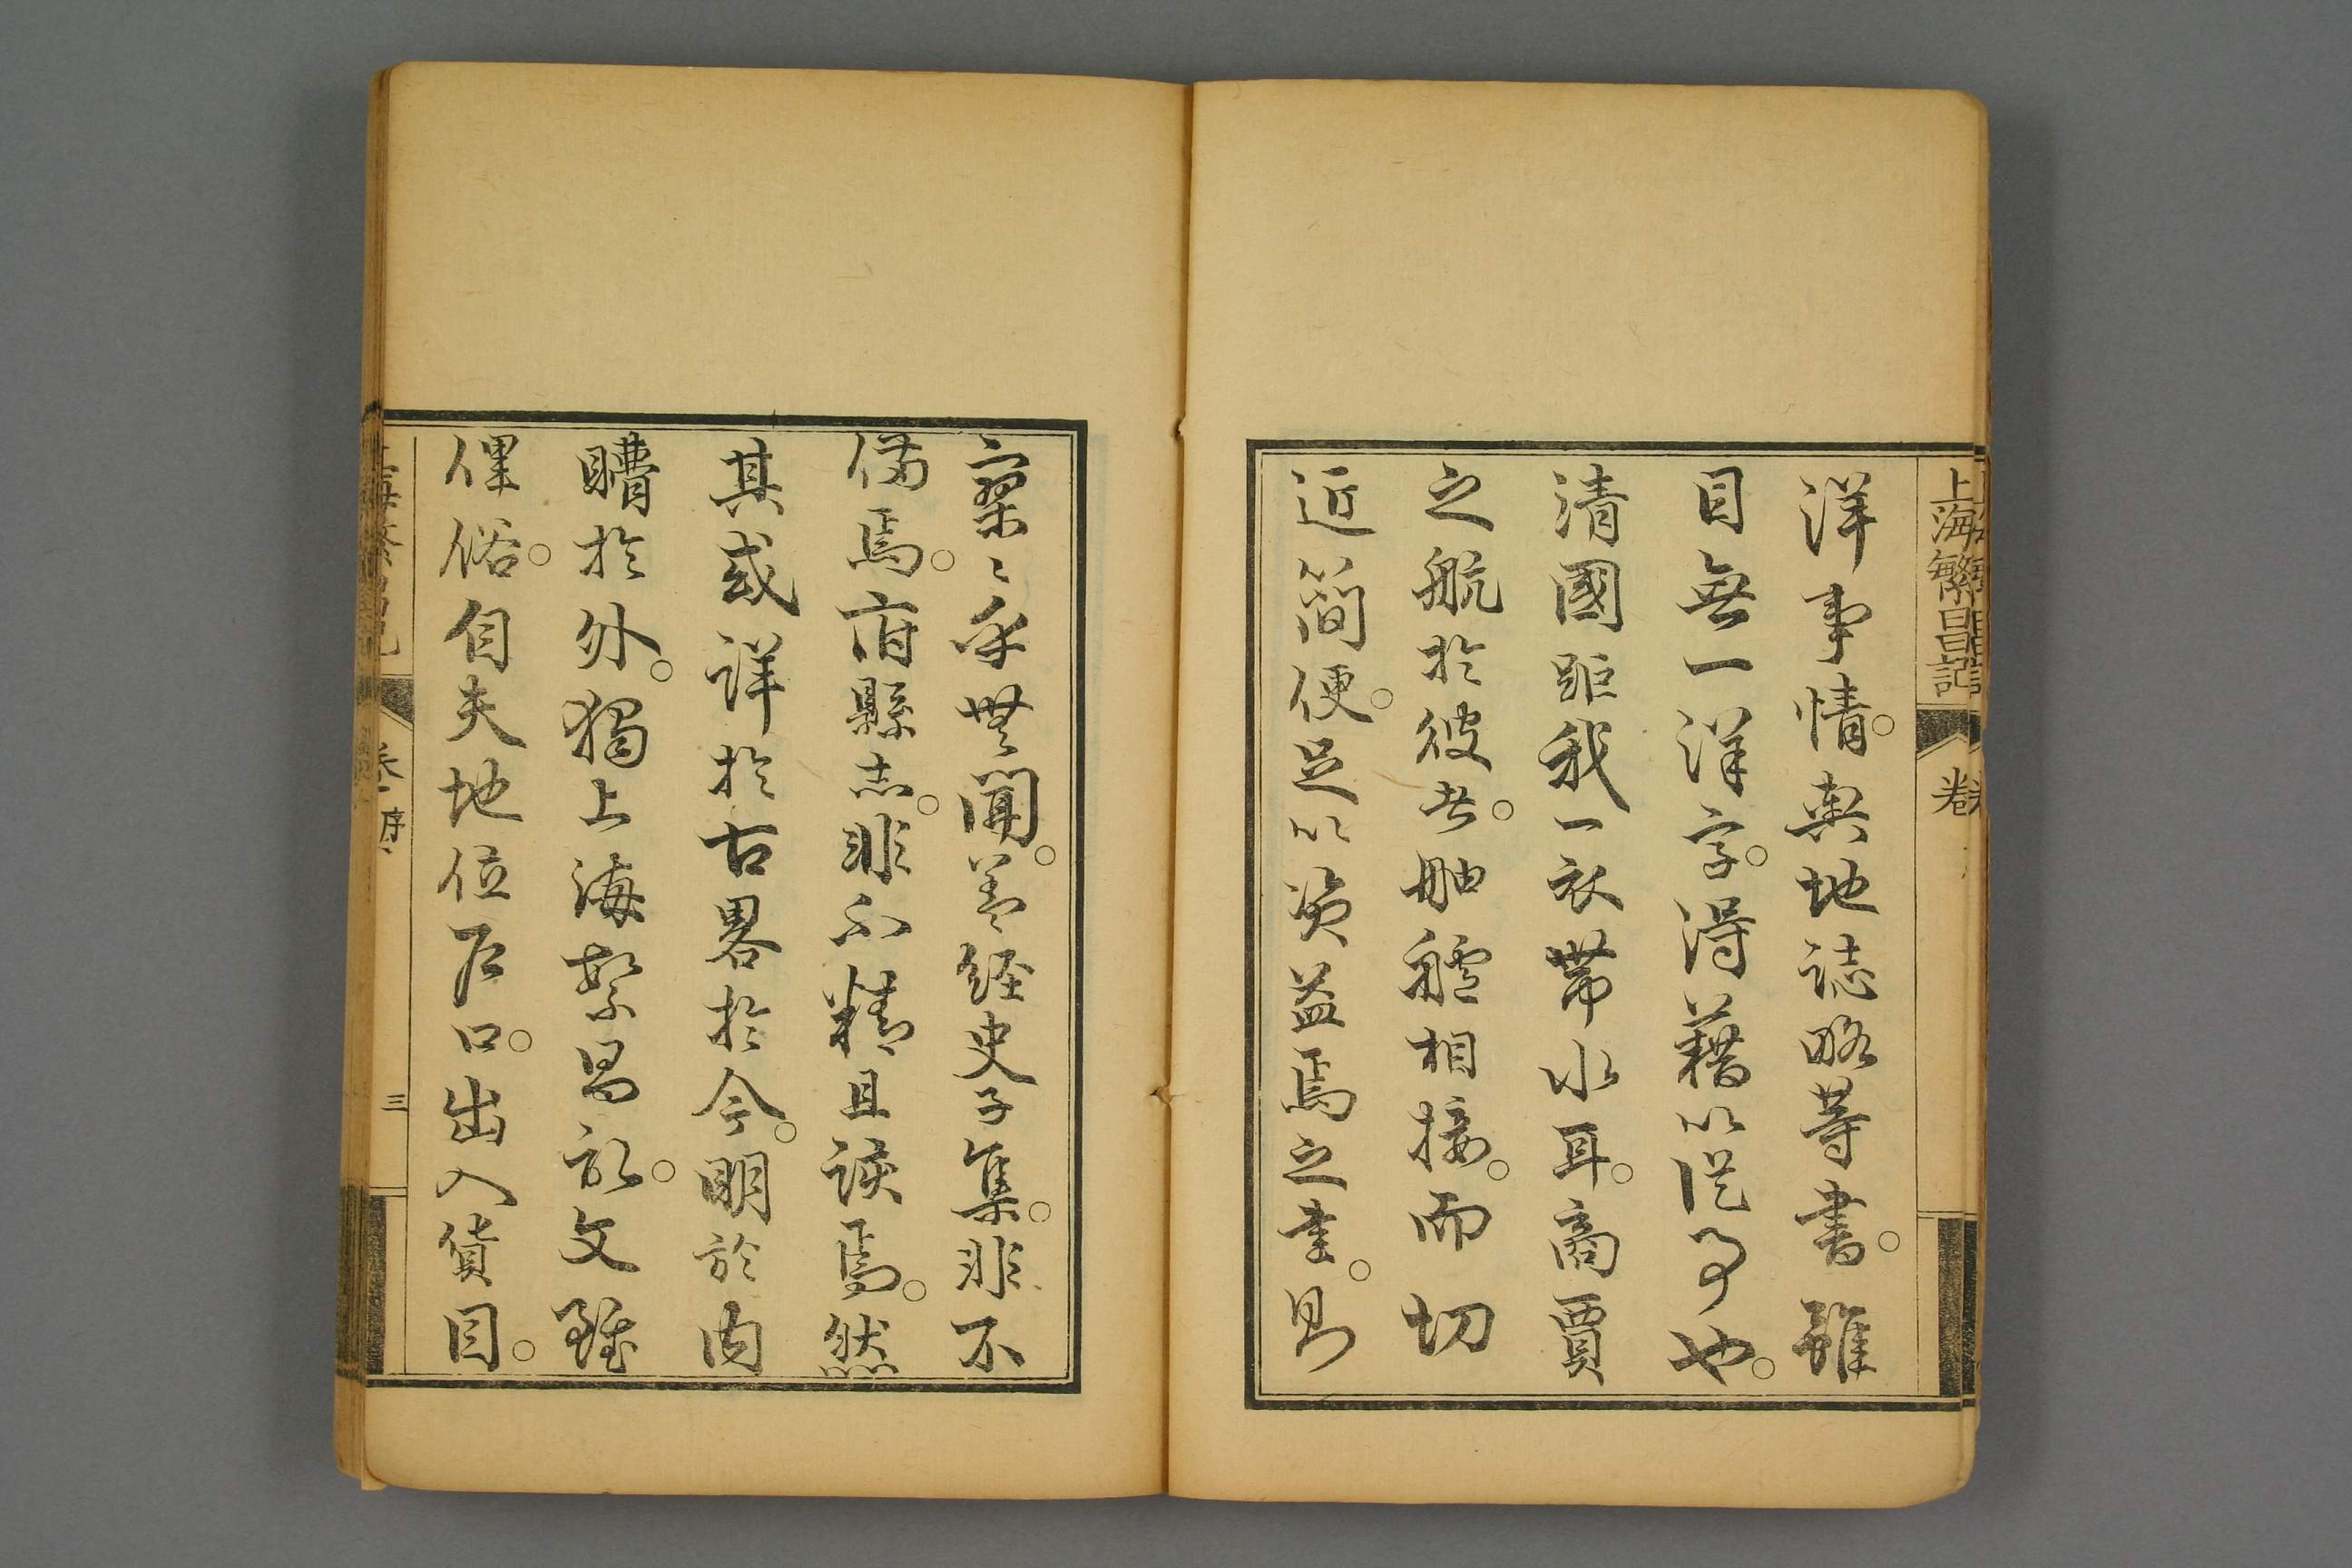 上海繁昌記
卷
洋事情。輿地誌略等書。雖
目無一洋字。得藉以從事也。
清國距我一衣帶水耳。商賈
之航於彼者。舳艫相接。而切
近簡便。足以資益焉之書。則
寥〻乎無聞。蓋經史子集。非不
備焉。府縣志。非不精且誤焉。然
其或詳於古畧於今。明於內
瞶於外。獨上海繁昌記。文雖
俚俗。自夫地位戶口。出入貨目。
卷一 序
三